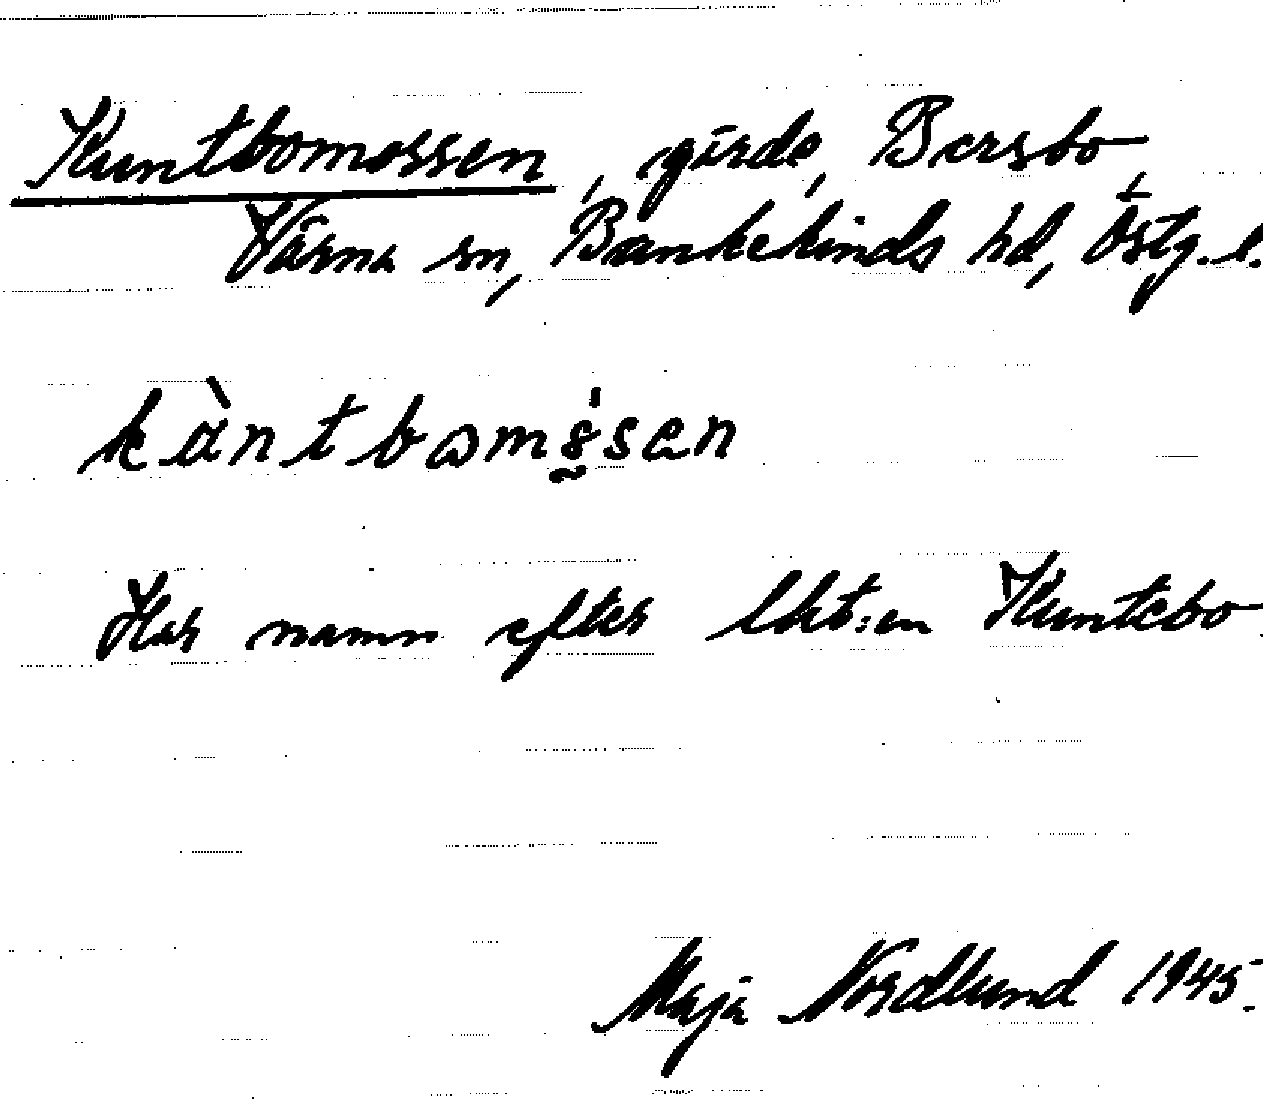 Kuntbomossen, gärde, Bersbo,
Värna sn, Bankekinds hd, Östg. l.
kàntbomǫ́ssen
Har namn efter lht:en Kuntebo.
Maja Nordlund 1945.